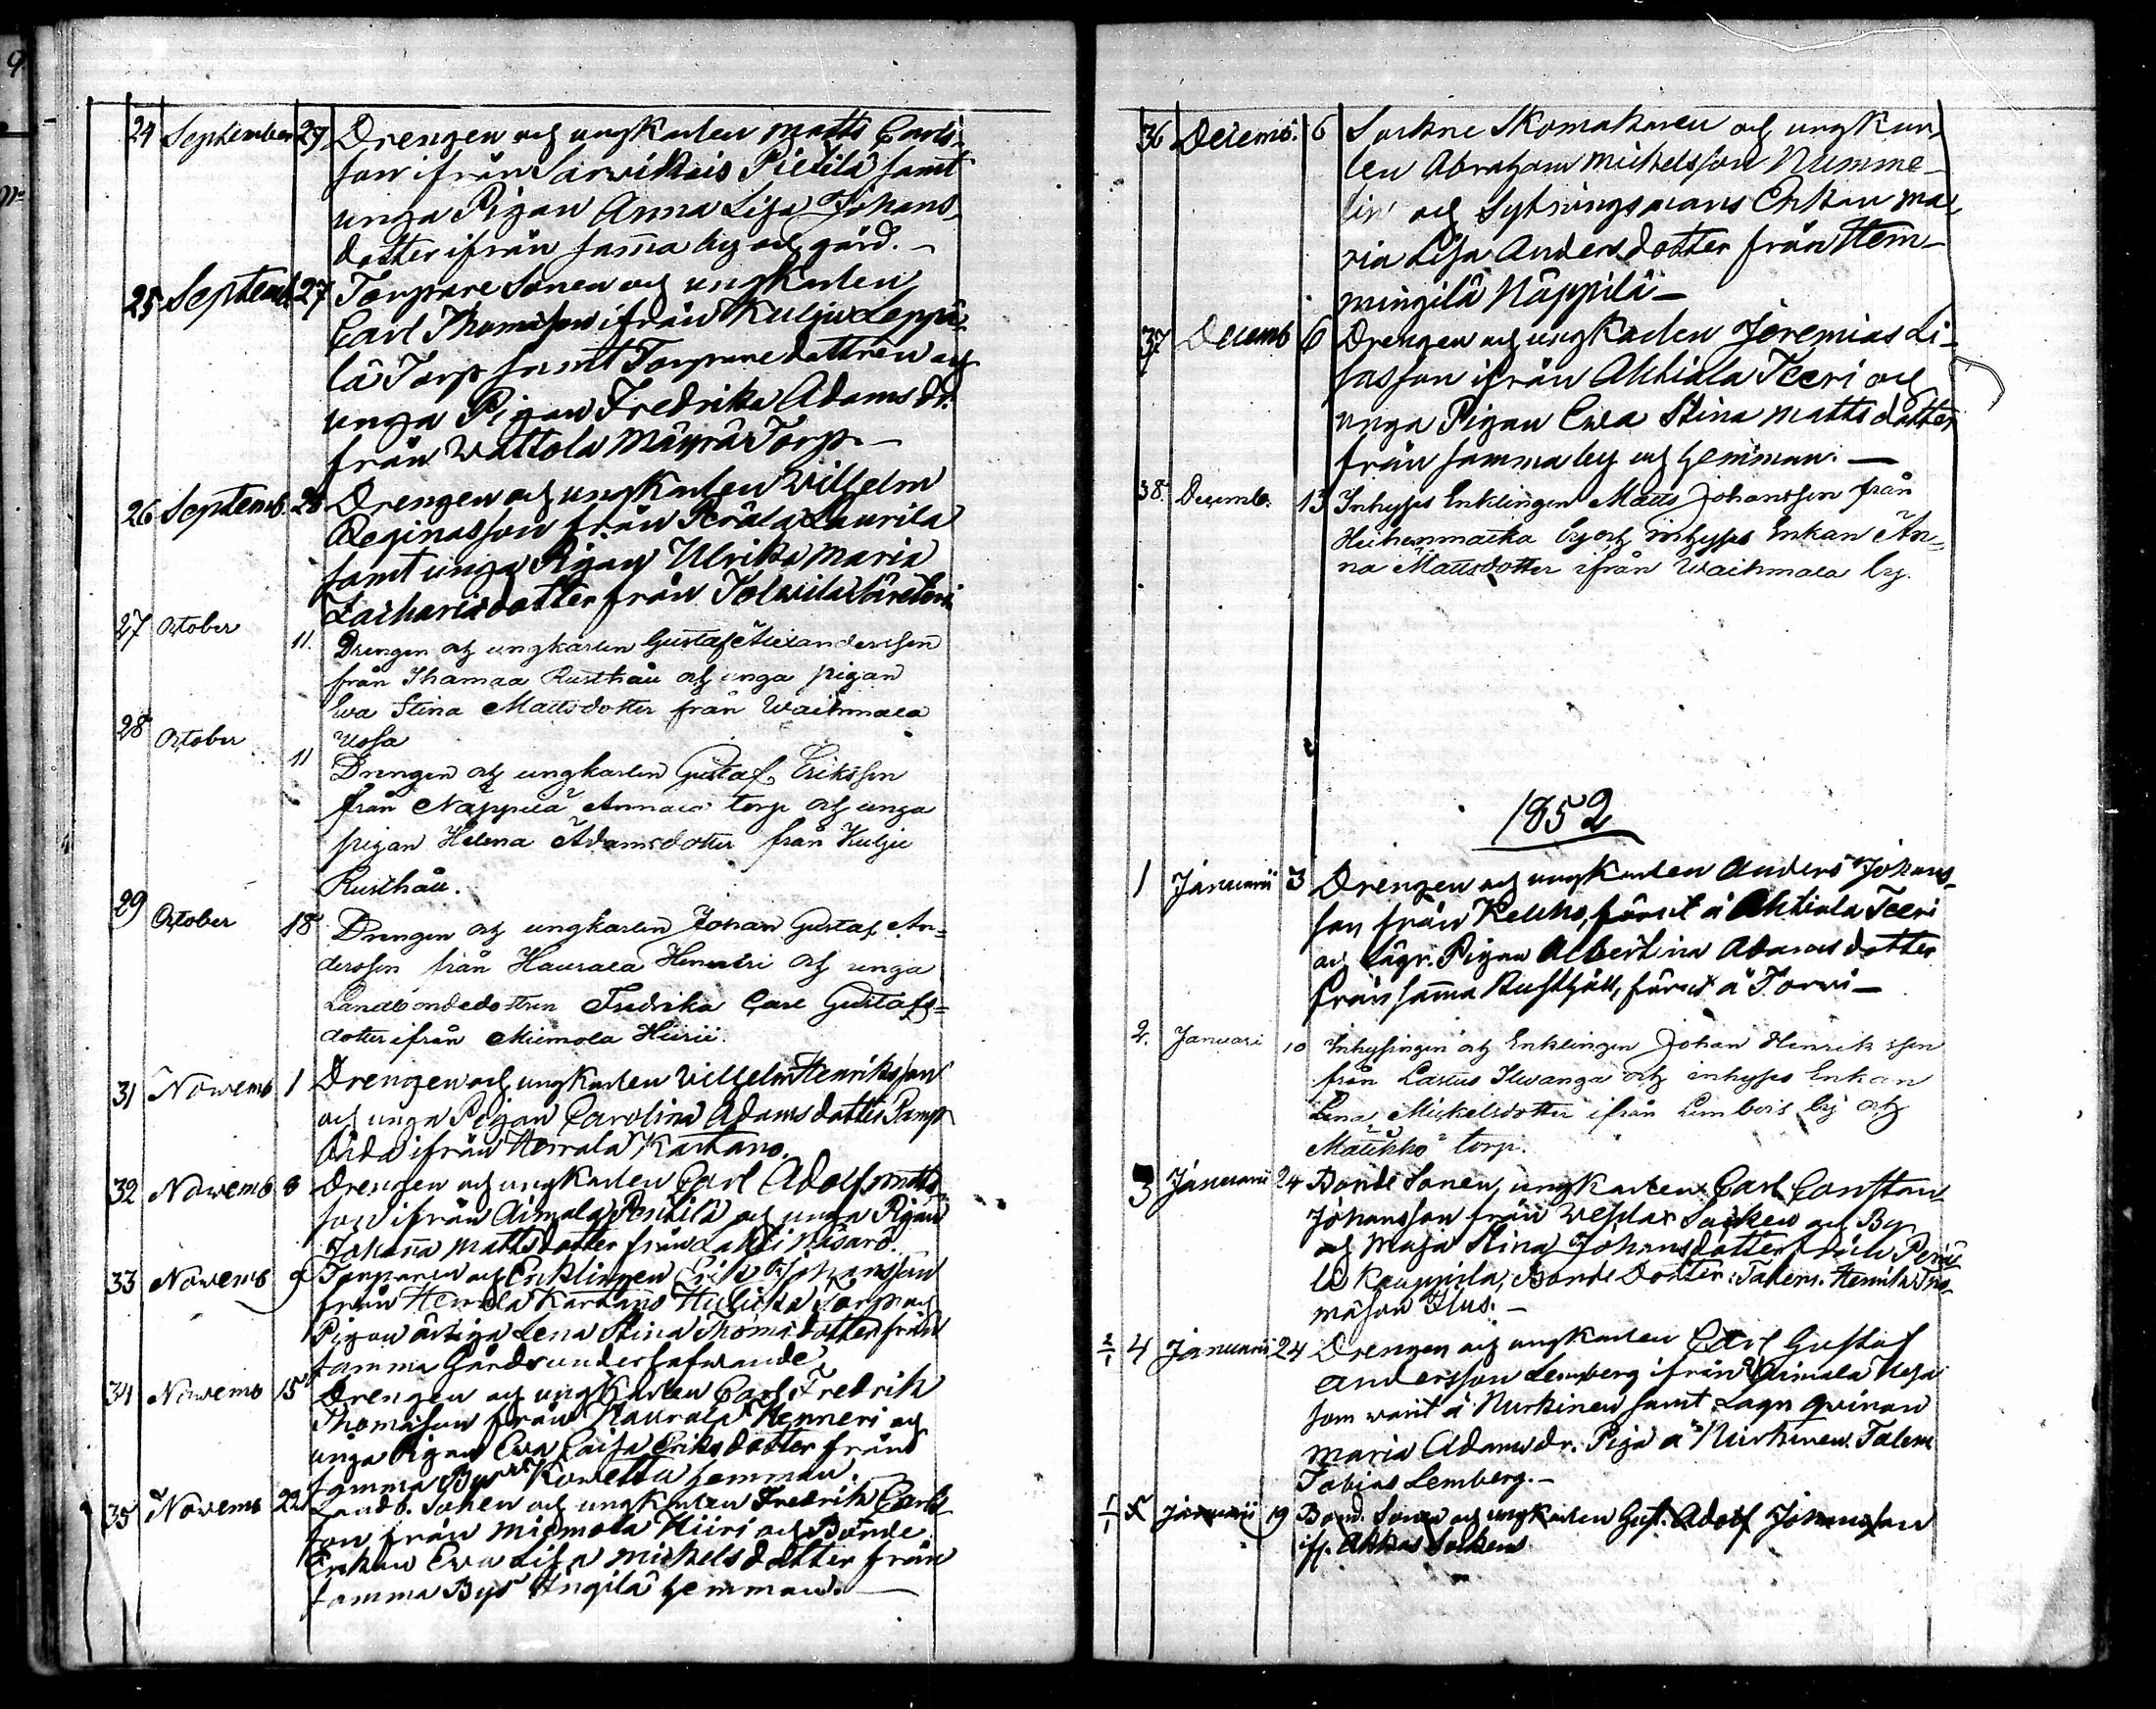 24 September 27 Drengen och ungkarlen Matts Carls-
son ifrån Sarvikais Pietilä samt
unga Pigan Anna Lisa Johans
dotter ifrån samma by och gård. –
25 Septemb. 27 Torpare Sonen och ungkarlen
Carl Thomasson ifrån Kulju Leppä-
lä Torp samt Torpare dottren och
unga Pigan Fredrika Adams dr.
från Wattola Mäyrä Torp. –
26 Septemb. 28 Drengen och ungkarlen Wilhelm
Reginasson från Perälä Laurila
samt unga Pigan Ulrika Maria
Zachariædotter från
27 October 11. Drengen och ungkarlen Gustaf Alexandersson
från Ihamaa Rusthåll och unga pigan
Ewa Stina Mattsdotter från Waihmala
Uosa
28 October 11 Drengen och ungkarlen Gustaf Eriksson
från Näppilä Annala torp och unga
pigan Helena Adamsdotter från Kulju
Rusthåll.
29 October 18 Drengen och ungkarlen Johan Gustaf An=
dersson från Haurala Henneri och unga
Landbondedottren Fredrika Carl Gustafs=
dotter ifrån Miemola Hiirii.
31 Novemb 1 Drengen och ungkarlen Vilhelm Henriksson
och unga Pigan Carolina Adams dotter Pamp
båda ifrån Herrala Kartano.
32 Novemb 8 Drengen och ungkarlen Carl Adolf Matts
son ifrån Aimala Penttilä och unga Pigan
Johanna Mattsdotter från Lahti
33 Novemb 9 Torparen och Enklingen Erik Johansson
från Herrala Kartano Torp och
Pigan ärliga Lena Stina Thomædotter från
samma Gårds underhafwande
34 Novemb 15 Drengen och ungkarlen Carl Fredrik
Thomasson från Haurala Henneri och
unga Pigan Ewa Caisa Eriksdotter från
samma Bys Konetta hemman.
35 Novemb 22 Landb. Sonen och ungkarlen Fredrik Carls
son från Miemola Hiiri och Bonde
Enkan Ewa Lisa Mickelsdotter från
samma Bys Ängilä hemman. –
36 Decemb. 6 Sockne Skomakaren och ungkar-
len Abraham Mickelsson Numme-
lin och Sytningsmans Enkan Ma-
ria Lisa Andersdotter från Hem-
mingilä Näppilä –
37 Decemb 6 Drengen och ungkarlen Jeremias Li-
sasson ifrån Ahtiala Teeri och
unga Pigan Ewa Stina Mattsdotter
från samma by och hemman. –
38. Decemb. 13 Inhyses Enklingen Matts Johansson från
by och inhyses Enkan An=
na Mattsdotter ifrån Waihmala by.
1852
1 Januarii 3 Drengen och ungkarlen Anders Johans-
son från Kelkho, förut å Ahtiala Teeri
och Lägr. Pigan Albertina Adamsdotter
från samma Rusthåll, förut å Torvi –
2. Januari 10 Inhysingen och Enklingen Johan Henriksson
från Lastus Ilwanga och inhyses Enkan
Lena Mickelsdotter ifrån Lembois by och
Matikko torp.
3 Januarii 24 Bonde Sonen, ungkarlen Carl Constan
Johansson från Wesilax Socken och By
och Maja Stina Johansdotter från Perä-
lä Kauppila, Bonde Dotter. Talem. Henrik Tho-
masson Ilus. –
2/1 4 Januarii 24 Drengen och ungkarlen Carl Gustaf
Andersson Lemberg ifrån Aimala Uosa
som warit å Nurkinen samt Lägr. Qwinan
Maria Adams dr. Piga å Nurkinen. Talem
Tobias Lemberg. –
1/1 5 Januarii 9 Bond. Sonen och ungkarlen Gust. Adolf Johansson
ifr. Akkas Socken